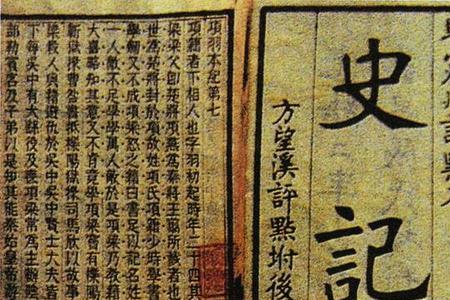 史記
方望溪評點坿後
項羽本紀第七
項籍者下相人也字羽初起時年二十四其
梁梁父卽楚將項燕為秦將王翦所戮者也
世為楚將封於項故姓項氏項籍少時學書
學劍又不成項梁怒之籍曰書足以記名姓
一人敵不足學學萬人敵於是項梁乃教籍
大喜略知其意又不肯竟學項梁嘗有櫟陽
蘄獄掾曹咎書抵櫟陽獄掾司馬欣以故事
梁殺人與籍避仇於吳中吳中賢士大夫皆
下每吳中有大繇役及喪項梁常為主辦陰
部勒賓客及子弟以是知其能秦始皇帝游